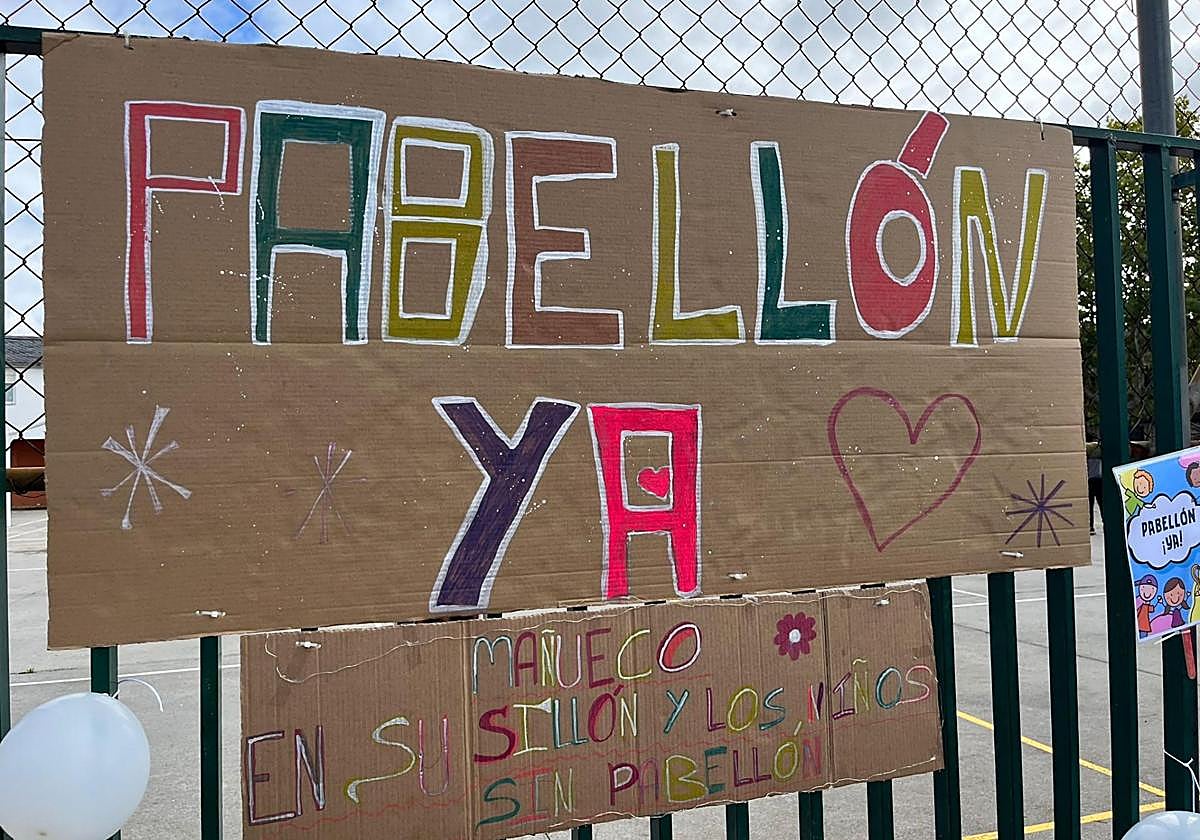 PABELLÓN
YA
MAÑUECO
EN SU SILLÓN Y LOS NIÑOS
SIN PABELLÓN
PABELLÓN
¡YA!